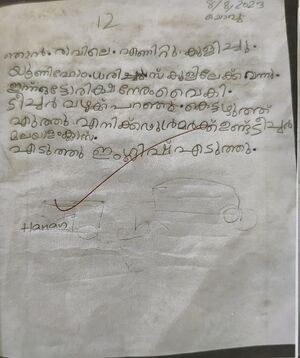 12
8/8/2023
ചൊവ്വ
ഞാൻ. രാവിലെ. എണിറ്റു. കുളിച്ചു.
യുണിഫോം ധരിച്ചു സ്കൂളിലേക്ക് വന്നു.
ഇന്ന് ഒട്ടോരിക്ഷ നേരം വൈകി.
ടീച്ചർ വഴക്ക് പറഞ്ഞു. കേട്ടഴുത്ത്
എടുത്തു എനിക്ക് ഫുൾമാർക്ക് ഉണ്ട് ടീച്ചർ
മലയാളംക്ലാസ്.
എടുത്തു ഇംഗ്ലിഷ് എടുത്തു.
Hanan